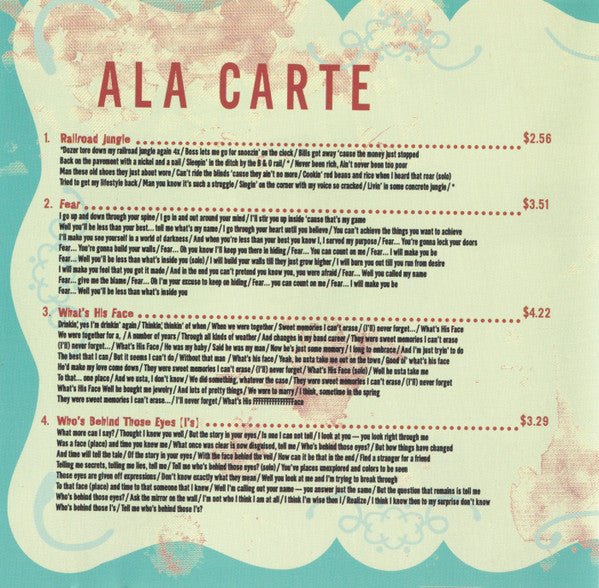 ALA CARTE
1. Railroad Jungle $2.56
*Dozer tore down my railroad jungle again 4x / Boss lets me go for snoozin' on the clock / Bills got away 'cause the money just stopped
Back on the pavement with a nickel and a nail / Sleepin' in the ditch by the B & O rail / * / Never been rich, Ain't never been too poor
Man these old shoes they just about wore / Can't ride the blinds 'cause they ain't no more / Cookin' red beans and rice when I heard that roar (solo)
Tried to get my lifestyle back / Man you know it's such a struggle / Singin' on the corner with my voice so cracked / Livin' in some concrete jungle / *
2. Fear $3.51
I go up and down through your spine / I go in and out around your mind / I'll stir you up inside 'cause that's my game
Well you'll be less than your best... tell me what's my name / I go through your heart until you believe / You can't achieve the things you want to achieve
I'll make you see yourself in a world of darkness / And when you're less than your best you know I, I served my purpose / Fear... You're gonna lock your doors
Fear... You're gonna build your walls / Fear... Oh you know I'll keep you there in hiding / Fear... You can count on me / Fear... I will make you be
Fear... Well you'll be less than what's inside you (solo) / I will build your walls till they just grow higher / I will burn you out till you run from desire
I will make you feel that you got it made / And in the end you can't pretend you know you, you were afraid / Fear... Well you called my name
Fear... give me the blame / Fear... Oh I'm your excuse to keep on hiding / Fear... you can count on me / Fear... I will make you be
Fear... Well you'll be less than what's inside you
3. What's His Face $4.22
Drinkin', yes I'm drinkin' again / Thinkin', thinkin' of when / When we were together / Sweet memories I can't erase / (I'll) never forget... / What's His Face
We were together for a, / A number of years / Through all kinds of weather / And changes in my band career / They were sweet memories I can't erase
(I'll) never forget... / What's His Face / He was my baby / Said he was my man / Now he's just some mommy / I long to embrace / And I'm just tryin' to do
The best that I can / But it seems I can't do / Without that man / What's his face / Yeah, he usta take me out on the town / Good ol' what's his face
He'd make my love come down / They were sweet memories I can't erase / (I'll) never forget / What's His Face (solo) / Well he usta take me
To that... one place / And we usta, I don't know / We did something, whatever the case / They were sweet memories I can't erase / (I'll) never forget
What's His Face Well he bought me jewelry / And lots of pretty things / We were to marry / I think, sometime in the spring
They were sweet memories I can't erase... / I'll never forget / What's His FFFFFFFFFFFFFFFace
4. Who's Behind Those Eyes (I's) $3.29
What more can I say? / Thought I knew you well / But the story in your eyes / Is one I can not tell / I look at you — you look right through me
Was a face (place) and time you knew me / What once was clear is now disguised, tell me / Who's behind those eyes? / But how things have changed
And time will tell the tale / Of the story in your eyes / With the face behind the veil / How can it be that in the end / Find a stranger for a friend
Telling me secrets, telling me lies, tell me / Tell me who's behind those eyes? (solo) / You've places unexplored and colors to be seen
Those eyes are given off expressions / Don't know exactly what they mean / Well you look at me and I'm trying to break through
To that face (place) and time to that someone that I knew / Well I'm calling out your name — you answer just the same / But the question that remains is tell me
Who's behind those eyes? / Ask the mirror on the wall / I'm not who I think I am at all / I think I'm wise then I / Realize / I think I know then to my surprise don't know
Who's behind those I's / Tell me who's behind those I's?